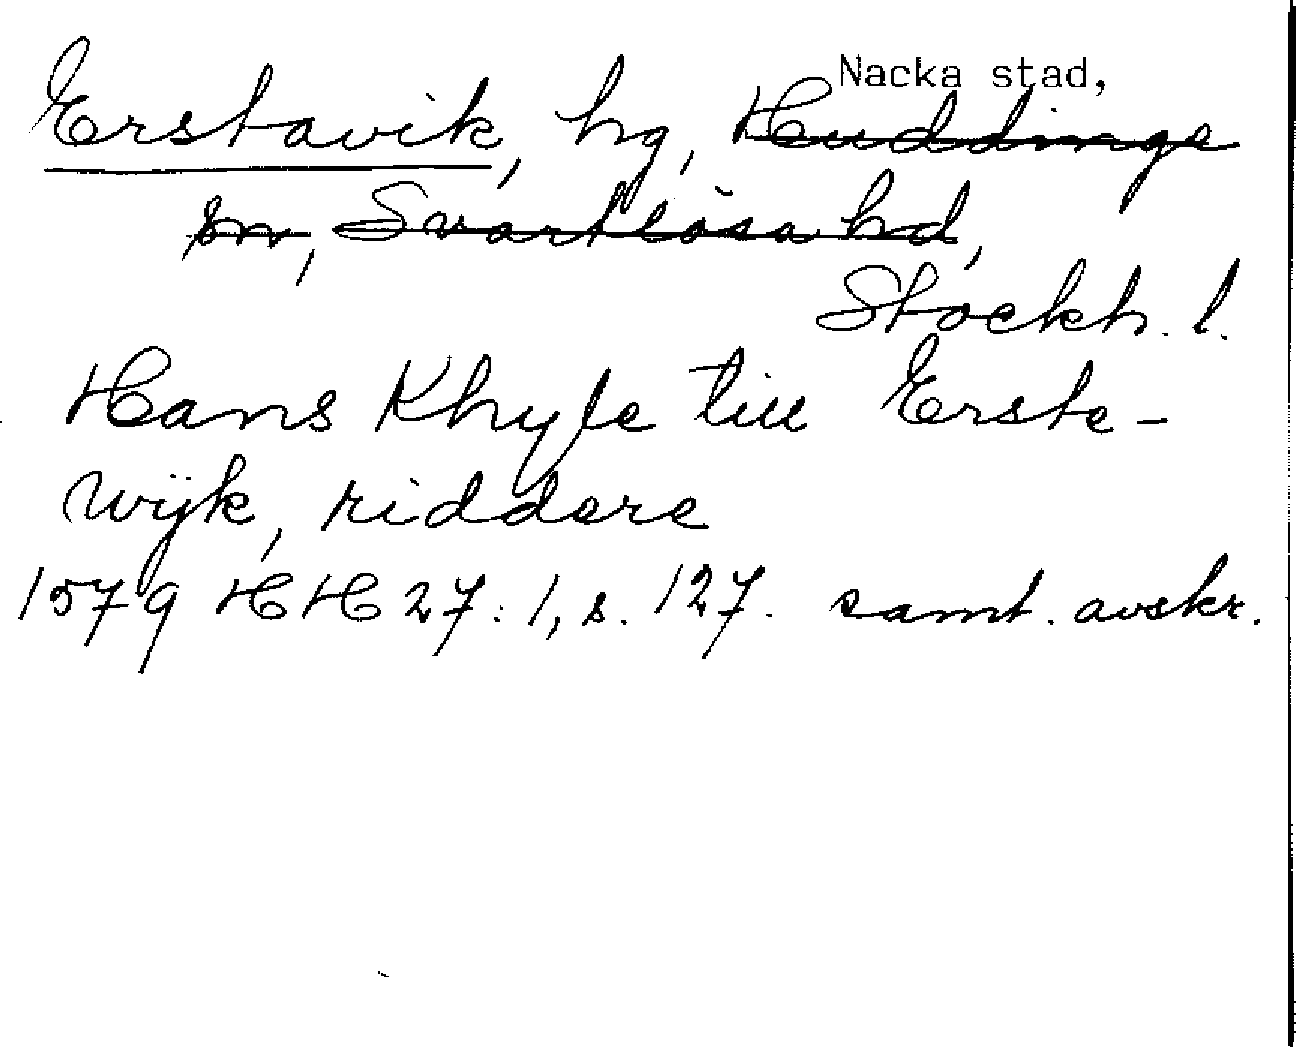 Nacka stad,
Erstavik, hg, Huddinge
sn, Svartlösa hd,
Stockh. l.
Hans Khyle till Erste-
wijk, riddere
1579 HH 27:1, s. 127. samt. avskr.